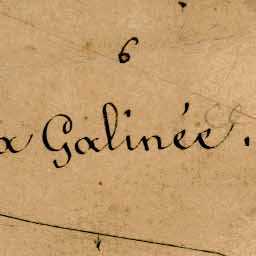 6
a Galinée.